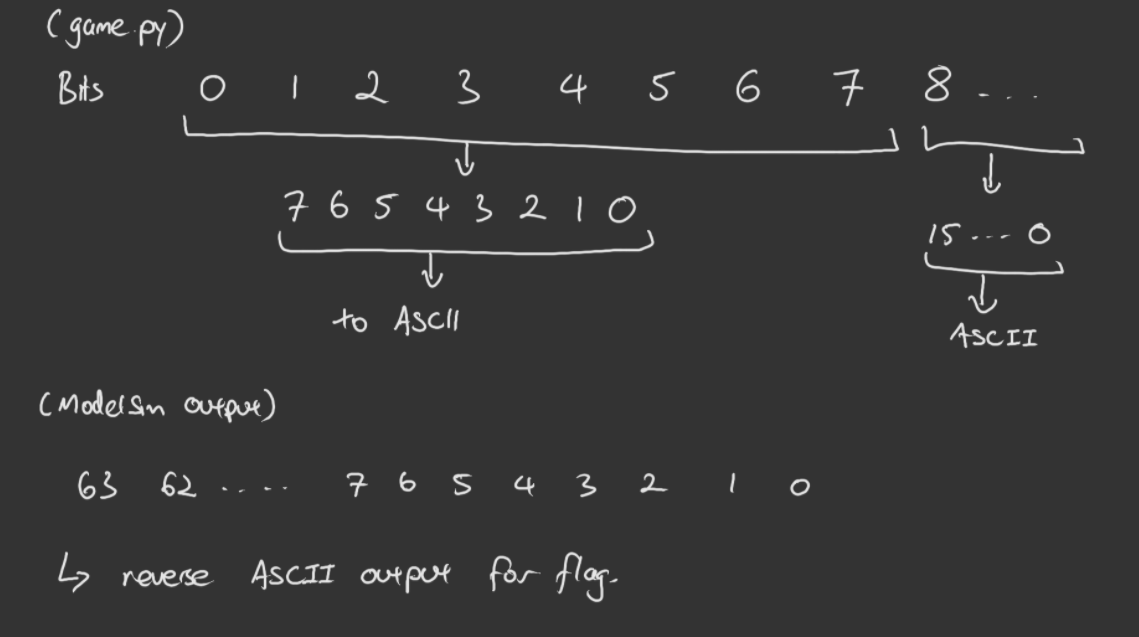 (game.py)
Bits 0 1 2 3 4 5 6 7 8 ...
7 6 5 4 3 2 1 0
15 ... 0
to ASCII
ASCII
(ModelSim output)
63 62 ..... 7 6 5 4 3 2 1 0
↳ reverse ASCII output for flag.